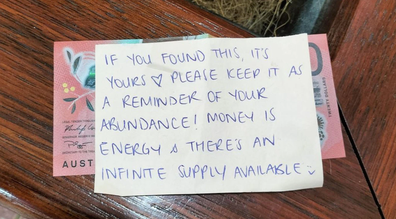 IF YOU FOUND THIS, IT'S
YOURS ♡ PLEASE KEEP IT AS
A REMINDER OF YOUR
ABUNDANCE! MONEY IS
ENERGY & THERE'S AN
INFINITE SUPPLY AVAILABLE
AUST
TWENTY DOLLARS